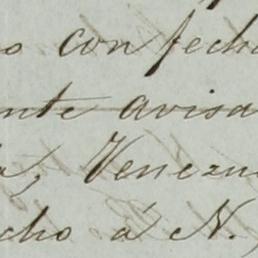 o con fech
nte avisa
a, Venezu
cho á N.